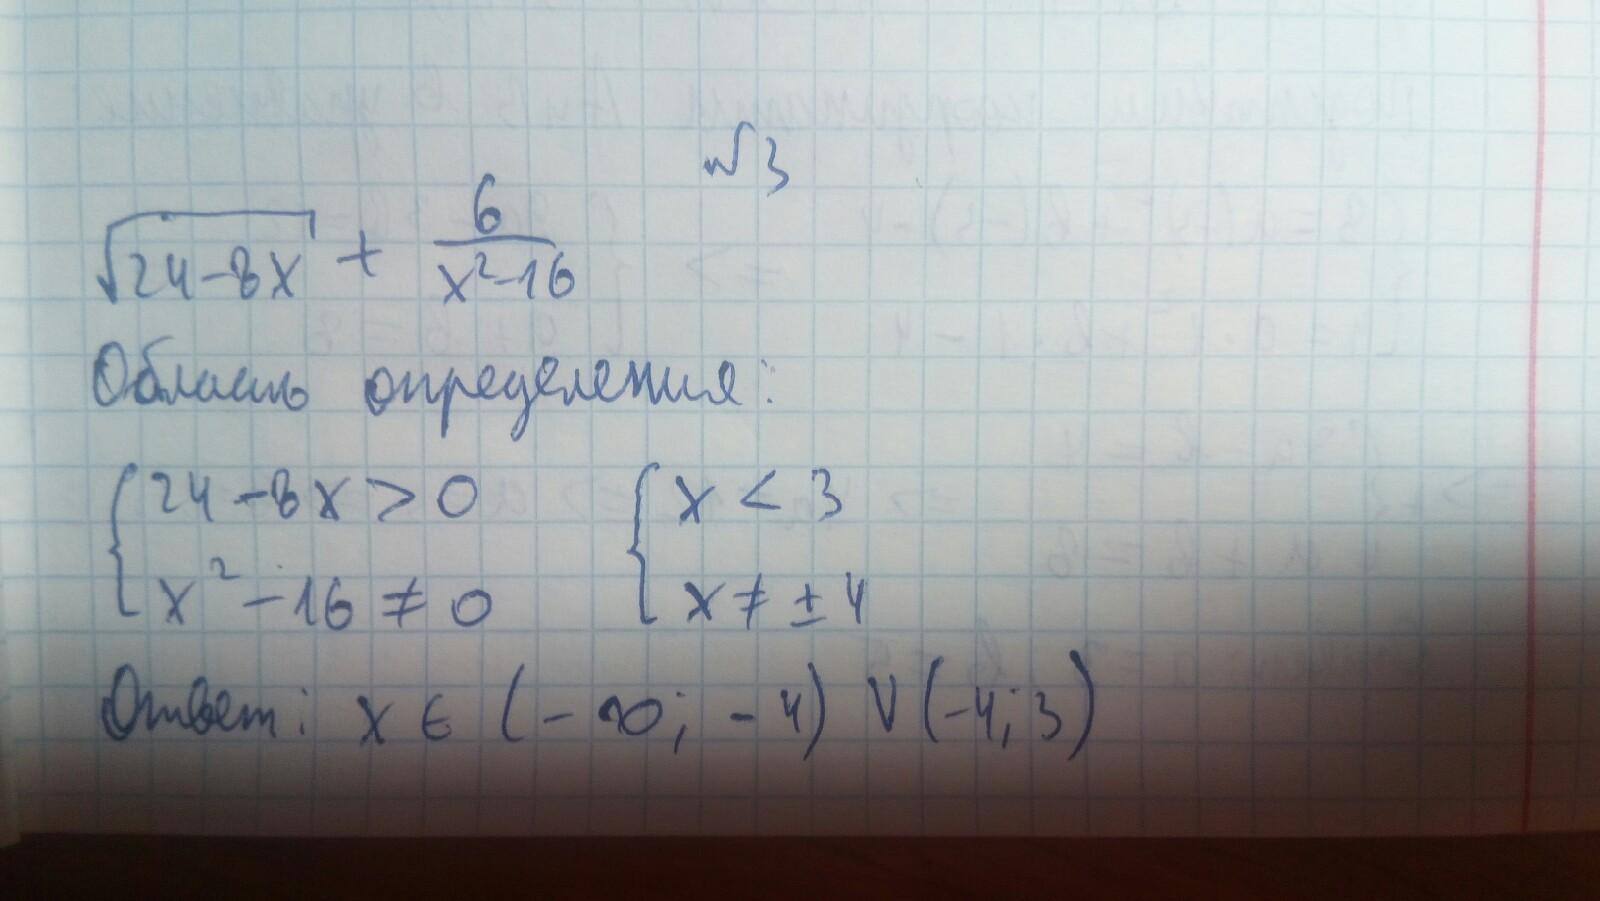 №3
√24-8x + 6/x²-16
Область определения:
{24-8x > 0 {x < 3
{x²-16 ≠ 0 {x ≠ ±4
Ответ: x ∈ (-∞; -4) V (-4; 3)